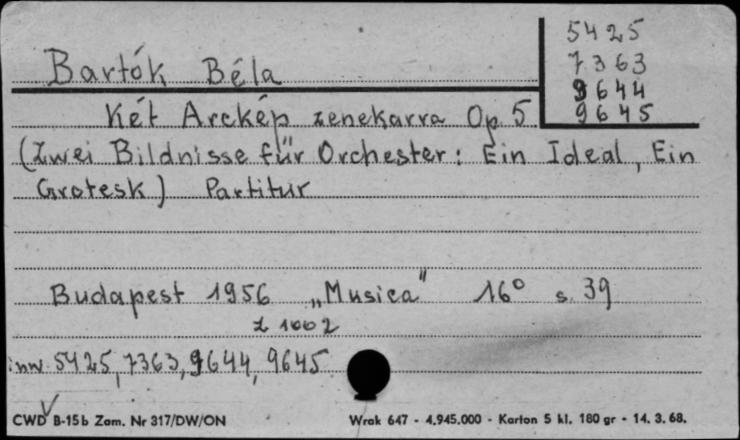 5425
7363
9644
9645
Bartók Béla
Két Arckép zenekarra Op 5
(Zwei Bildnisse für Orchester: Ein Ideal, Ein
Grotesk) Partitur
Budapest 1956 „Musica" 16° s. 39
Z 1002
inw. 5425, 7363, 9644, 9645
CWD B-15b Zam. Nr 317/DW/ON
Wrak 647 - 4.945.000 - Karton 5 kl. 180 gr - 14. 3. 68.